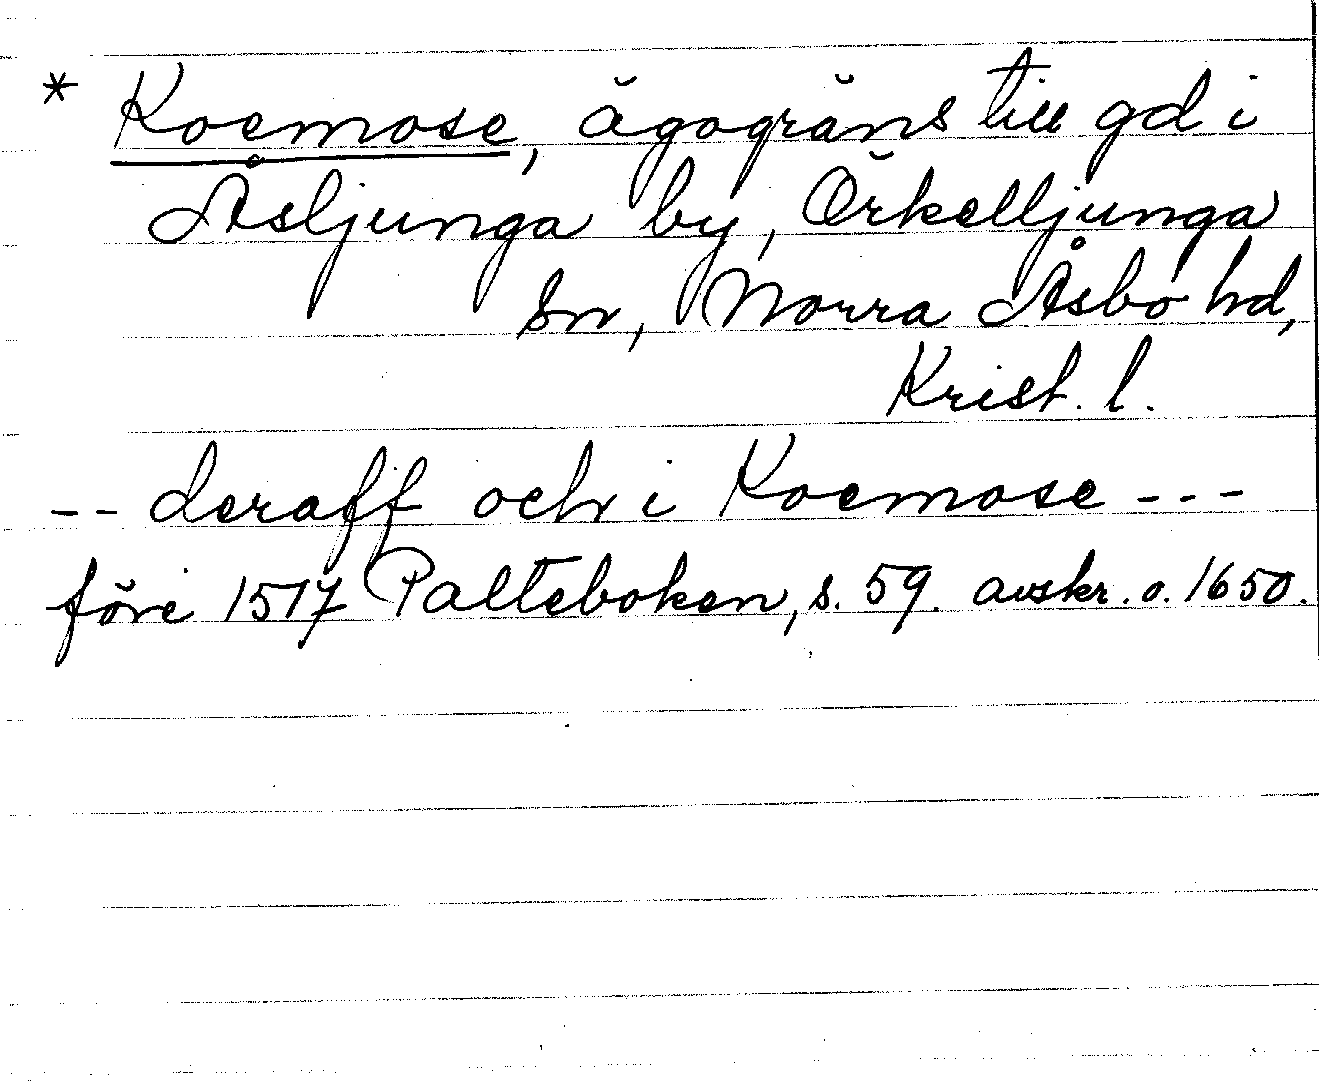 * Koemose, ägogräns till gd i
Åsljunga by, Örkelljunga
sn, Norra Åsbo hd,
Krist. l.
-- deraff och i Koemose ---
före 1517 Palteboken, s. 59. avskr. o. 1650.